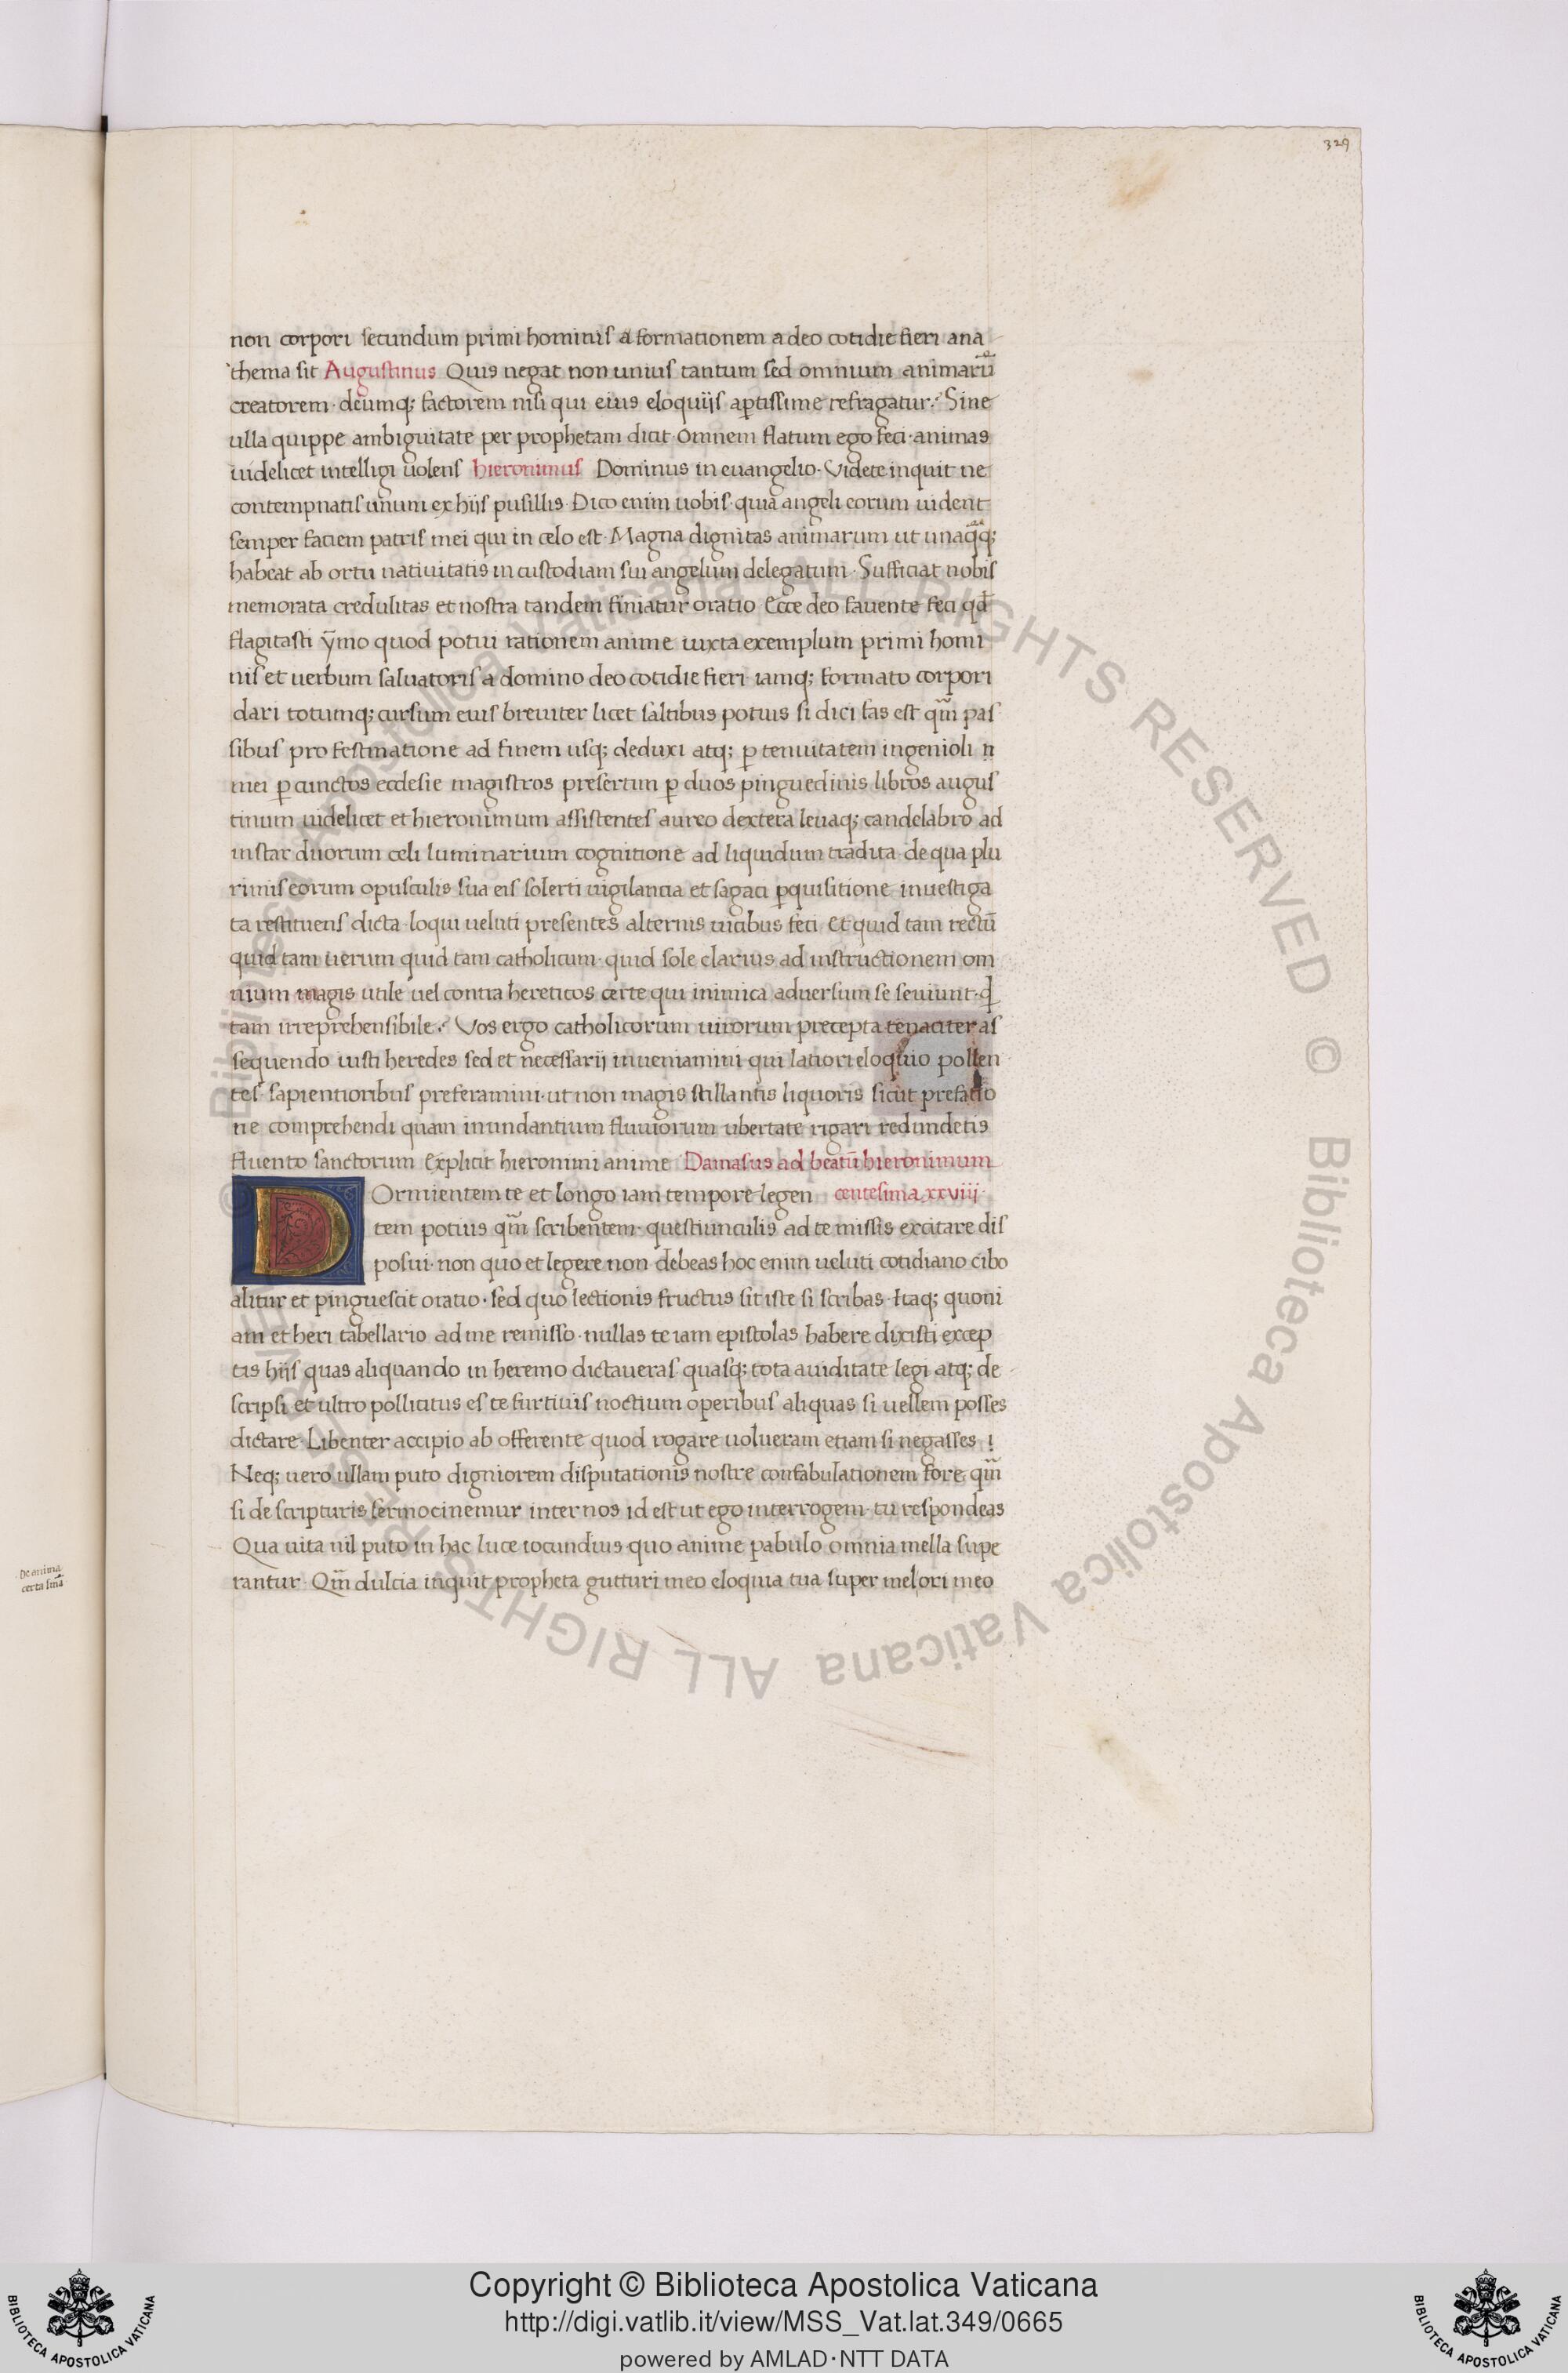 329
non corpori secundum primi hominis a formationem a deo cotidie fieri ana
thema sit Augustinus Quis negat non unius tantum sed omnium animarũ
creatorem · deumq; factorem nisi qui eius eloquijs aptissime refragatur? Sine
ulla quippe ambiguitate per prophetam dicit · Omnem flatum ego feci · animas
uidelicet intelligi uolens hieronimus Dominus in euangelio · Videte inquit ne
contempnatis unum ex hijs pusillis · Dico enim uobis · quia angeli eorum uident
semper faciem patris mei qui in celo est · Magna dignitas animarum ut unaq̃q;
habeat ab ortu natiuitatis in custodiam sui angelum delegatum · Sufficiat nobis
memorata credulitas et nostra tandem finiatur oratio Ecce deo fauente feci qđ
flagitasti ỹmo quod potui rationem anime iuxta exemplum primi homi
nis et uerbum saluatoris a domino deo cotidie fieri iamq; formato corpori
dari totumq; cursum eius breuiter licet saltibus potius si dici fas est qm̃ pas
sibus pro festinatione ad finem usq; deduxi atq; ꝑ tenuitatem ingenioli
mei ꝑ cunctos ecclesie magistros presertim ꝑ duos pinguedinis libros augus
tinum uidelicet et hieronimum assistentes aureo dextera leuaq; candelabro ad
instar duorum celi luminarium cognitione ad liquidum tradita · de qua plu
rimis eorum opusculis sua eis solerti uigilancia et sagaci ꝑquisitione inuestiga
ta restituens dicta · loqui ueluti presentes alternis uicibus feci Et quid tam rectũ
quid tam uerum quid tam catholicum · quid sole clarius ad instructionem om
nium magis utile uel contra hereticos certe qui inimica aduersum se seuiunt · ꝗ
tam irreprehensibile? Vos ergo catholicorum uirorum precepta tenaciter as
sequendo iusti heredes sed et necessarij inueniamini qui latiori eloquio pollen
tes · sapientioribus preferamini · ut non magis stillantis liquoris sicut prefatio
ne comprehendi quam inundantium fluuiorum ubertate rigari redundetis
fluento sanctorum Explicit hieronimi anime Damasus ad beatũ hieronimum
DOrmientem te et longo iam tempore legen centesima xxviij
tem potius qm̃ scribentem · questiunculis ad te missis excitare dis
posui · non quo et legere non debeas hoc enim ueluti cotidiano cibo
alitur et pinguescit oratio · sed quo lectionis fructus sit iste si scribas · Itaq; quoni
am et heri tabellario ad me remisso · nullas te iam epistolas habere dixisti excep
tis hijs quas aliquando in heremo dictaueras quasq; tota auiditate legi atq; de
scripsi et ultro pollicitus es te furtiuis noctium operibus aliquas si uellem posses
dictare · Libenter accipio ab offerente quod rogare uolueram etiam si negasses !
Neq; uero ullam puto digniorem disputationis nostre confabulationem fore qm̃
si de scripturis sermocinemur inter nos id est ut ego interrogem · tu respondeas
Qua uita nil puto in hac luce iocundius quo anime pabulo omnia mella supe
rantur · Qm̃ dulcia inquit propheta gutturi meo eloquia tua super mel ori meo
De anima
certa sm̃a
© Biblioteca Apostolica Vaticana ALL RIGHTS RESERVED © Biblioteca Apostolica Vaticana ALL RIGHTS RESERVED
Copyright © Biblioteca Apostolica Vaticana
http://digi.vatlib.it/view/MSS_Vat.lat.349/0665
powered by AMLAD·NTT DATA
BIBLIOTECA APOSTOLICA VATICANA
BIBLIOTECA APOSTOLICA VATICANA